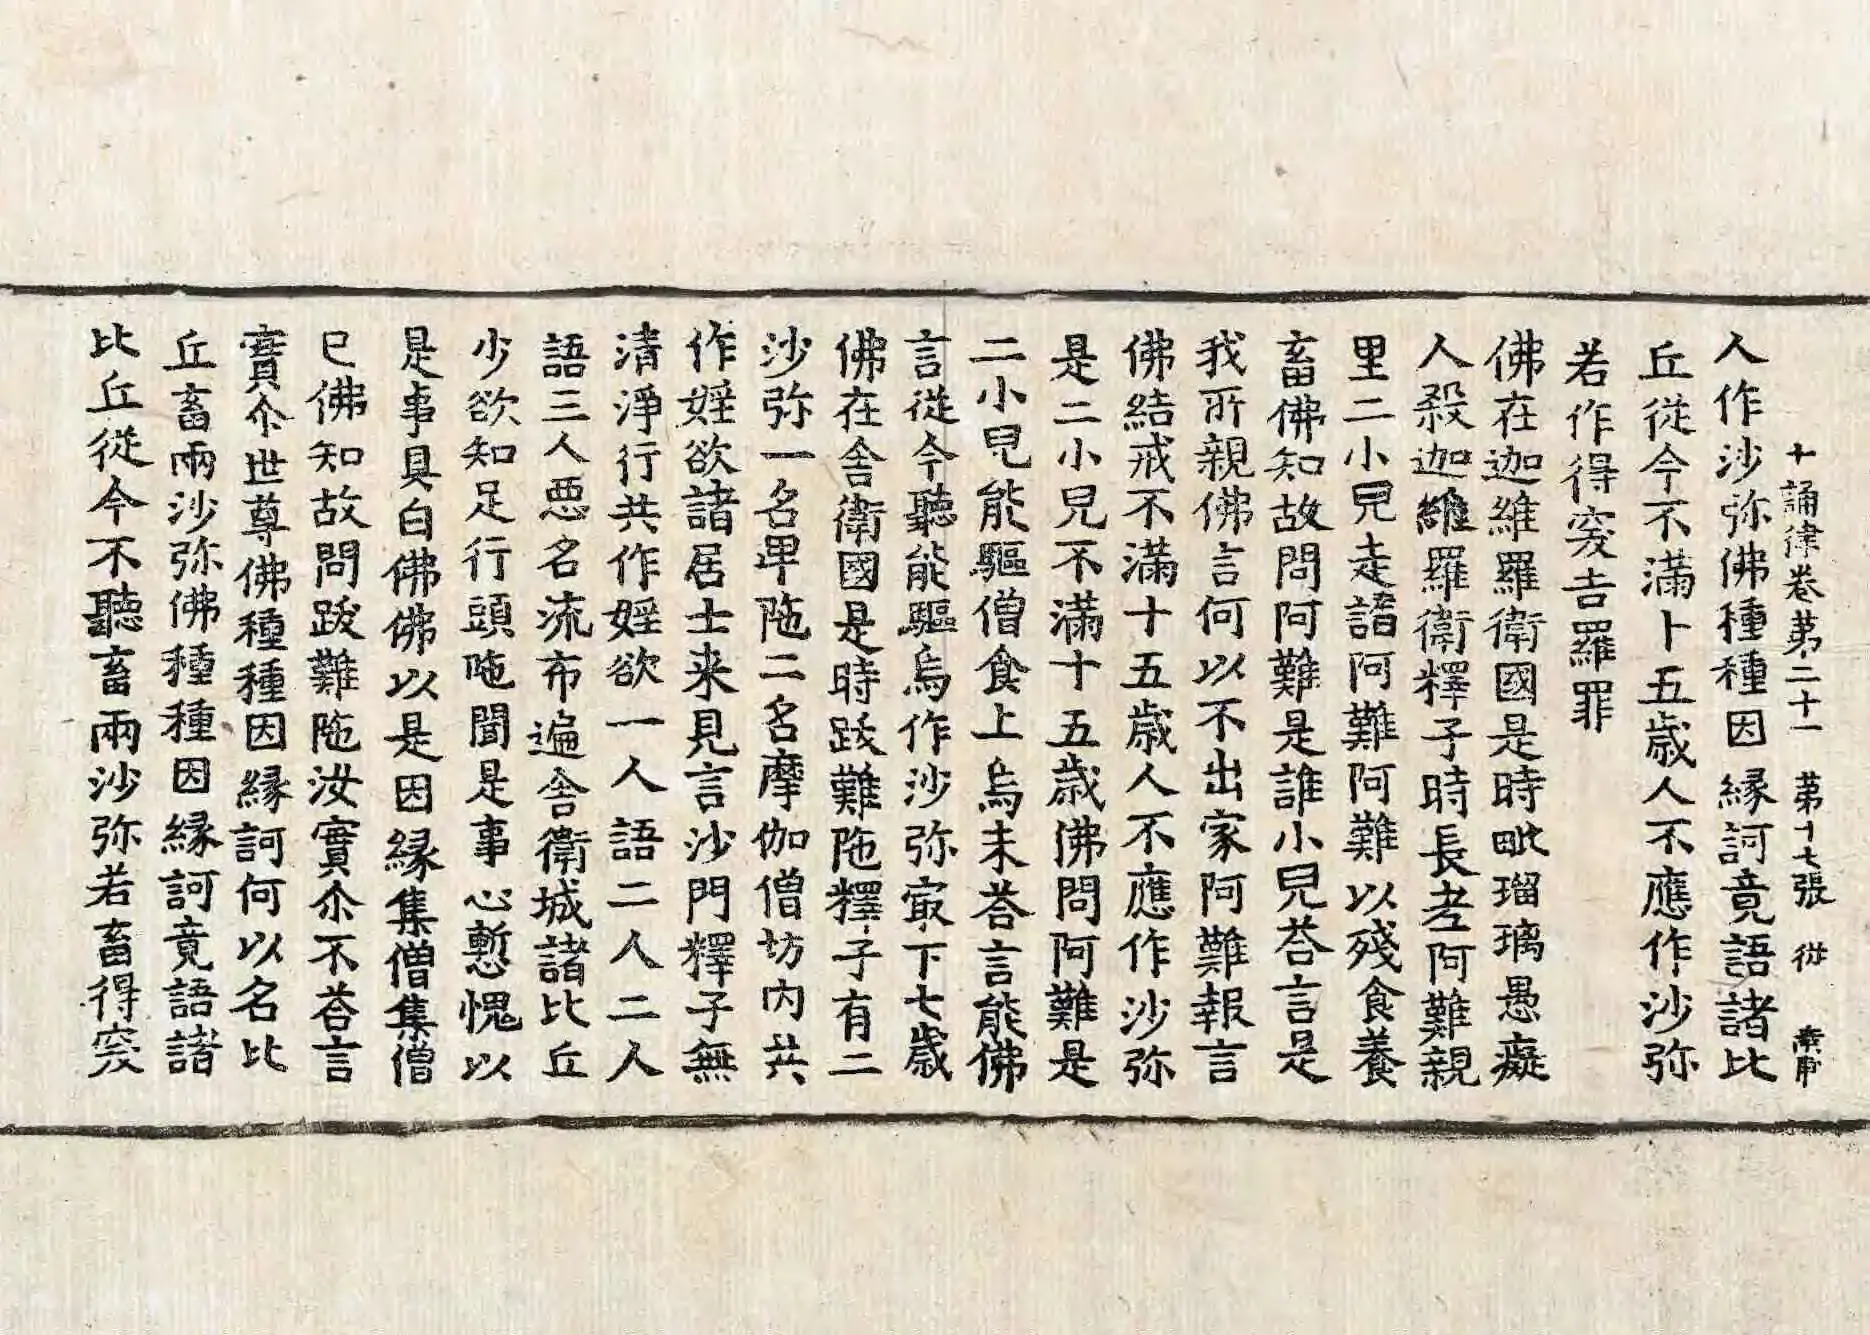 十誦律卷第二十一 第十七張 從
人作沙弥佛種種因縁訶竟語諸比
丘從今不滿十五歲人不應作沙弥
若作得突吉羅罪
佛在迦維羅衛國是時毗瑠璃愚癡
人殺迦維羅衛釋子時長老阿難親
里二小兒走詣阿難阿難以殘食養
畜佛知故問阿難是誰小兒荅言是
我所親佛言何以不出家阿難報言
佛結戒不滿十五歲人不應作沙弥
是二小兒不滿十五歲佛問阿難是
二小兒能驅僧食上烏未荅言能佛
言從今聽能驅烏作沙弥冣下七歲
佛在舍衛國是時跋難陁釋子有二
沙弥一名卑陁二名摩伽僧坊内共
作婬欲諸居士来見言沙門釋子無
清淨行共作婬欲一人語二人二人
語三人惡名流布遍舍衛城諸比丘
少欲知足行頭陁聞是事心慙愧以
是事具白佛佛以是因縁集僧集僧
已佛知故問跋難陁汝實尒不荅言
實尒世尊佛種種因縁訶何以名比
丘畜兩沙弥佛種種因縁訶竟語諸
比丘從今不聽畜兩沙弥若畜得突